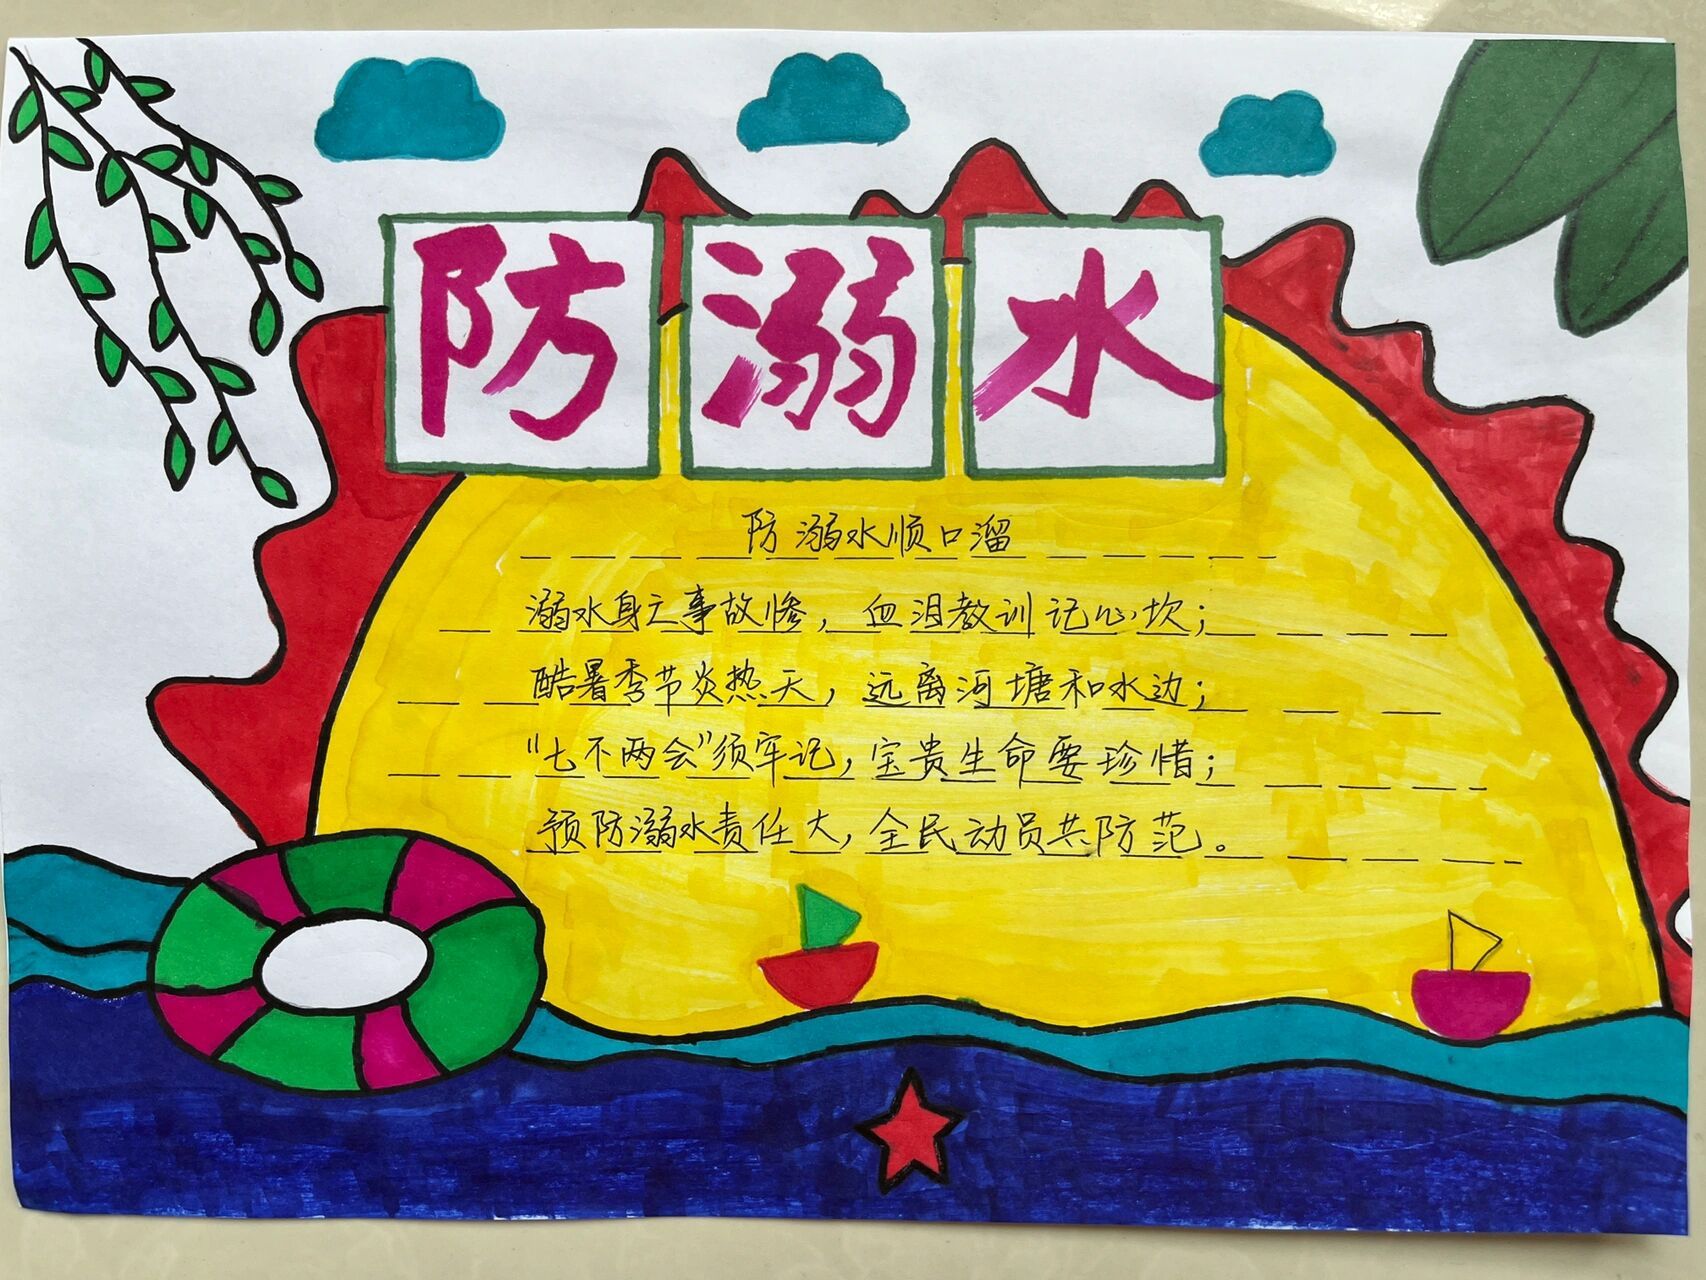 防溺水
防溺水顺口溜
溺水身亡事故惨，血泪教训记心坎；
酷暑季节炎热天，远离河塘和水边；
“七不两会”须牢记，宝贵生命要珍惜；
预防溺水责任大，全民动员共防范。